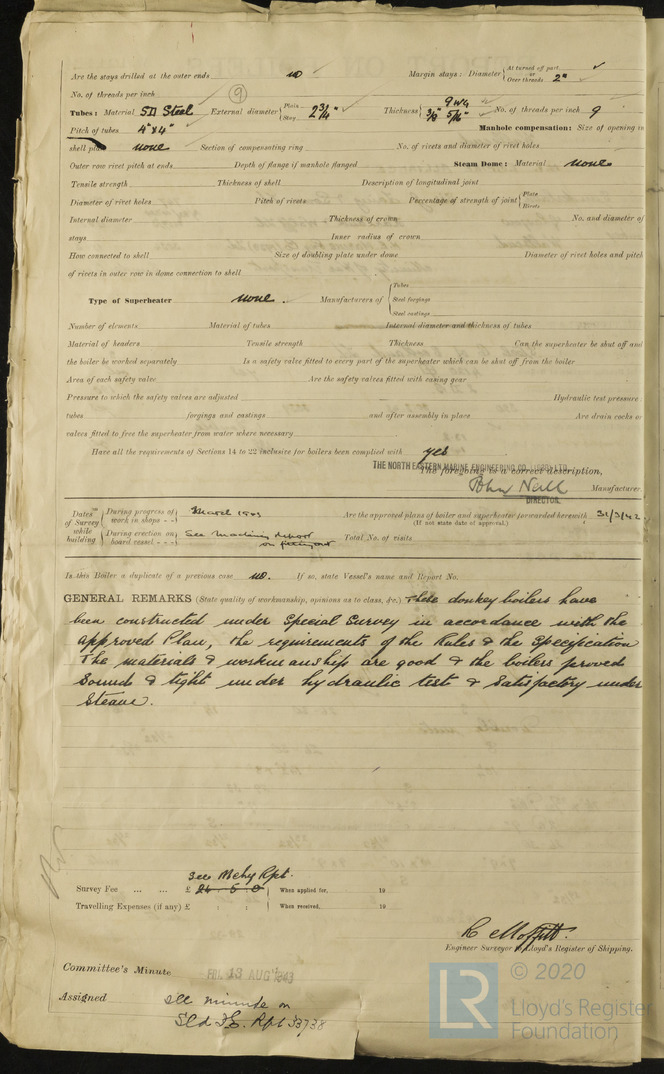 Are the stays drilled at the outer ends no Margin stays: Diameter { At turned off part or Over threads 2"
No. of threads per inch
9
Tubes: Material SD Steel External diameter { Plain Stay 2 3/4" Thickness { 9 WG 3/8" 5/16" No. of threads per inch 9
Pitch of tubes 4" x 4" Manhole compensation: Size of opening in
shell plate none Section of compensating ring No. of rivets and diameter of rivet holes
Outer row rivet pitch at ends Depth of flange if manhole flanged Steam Dome: Material none
Tensile strength Thickness of shell Description of longitudinal joint
Diameter of rivet holes Pitch of rivets Percentage of strength of joint { Plate Rivets
Internal diameter Thickness of crown No. and diameter of
stays Inner radius of crown
How connected to shell Size of doubling plate under dome Diameter of rivet holes and pitch
of rivets in outer row in dome connection to shell
Type of Superheater none. Manufacturers of { Tubes Steel forgings Steel castings
Number of elements Material of tubes Internal diameter and thickness of tubes
Material of headers Tensile strength Thickness Can the superheater be shut off and
the boiler be worked separately Is a safety valve fitted to every part of the superheater which can be shut off from the boiler
Area of each safety valve Are the safety valves fitted with easing gear
Pressure to which the safety valves are adjusted Hydraulic test pressure:
tubes forgings and castings and after assembly in place Are drain cocks or
valves fitted to free the superheater from water where necessary
Have all the requirements of Sections 14 to 22 inclusive for boilers been complied with yes
THE NORTH EASTERN MARINE ENGINEERING CO. (1938) LTD.
The foregoing is a correct description,
John Neill Manufacturer.
DIRECTOR.
Dates of Survey while building { During progress of work in shops - - } March 1943 Are the approved plans of boiler and superheater forwarded herewith 31/3/42
(If not state date of approval.)
{ During erection on board vessel - - - } See Machinery report on fitting out Total No. of visits
Is this Boiler a duplicate of a previous case no. If so, state Vessel's name and Report No.
GENERAL REMARKS (State quality of workmanship, opinions as to class, &c.) These donkey boilers have
been constructed under Special Survey in accordance with the
approved Plan, the requirements of the Rules & the Specification
The materials & workmanship are good & the boilers proved
Sound & tight under hydraulic test & Satisfactory under
Steam.
see Mchy Rpt.
Survey Fee ... ... £ 24 5 0 When applied for, 19
Travelling Expenses (if any) £ : : When received, 19
R Moffitt.
Engineer Surveyor to Lloyd's Register of Shipping.
Committee's Minute FRI. 13 AUG 1943
Assigned see minute on
Sld F.E. Rpt 33738
LR © 2020
Lloyd's Register
Foundation